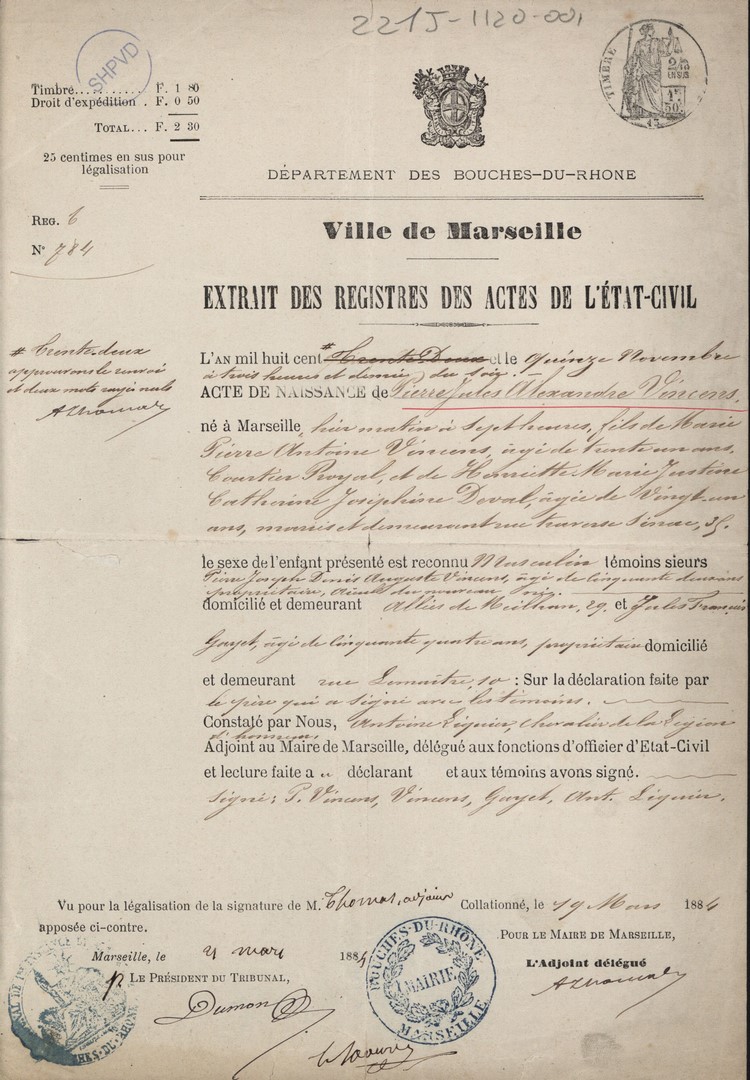 221J-1120-001
SHPVD
Timbre.......... F. 1 80
Droit d'expédition . F. 0 50
TOTAL... F. 2 30
25 centimes en sus pour
légalisation
TIMBRE
DÉPARTEMENT DES BOUCHES-DU-RHONE
REG. 6
N° 784
Ville de Marseille
EXTRAIT DES REGISTRES DES ACTES DE L'ÉTAT-CIVIL
# Trente-deux
approuvons le renvoi
et deux mots rayés nuls
AThomas
L'AN mil huit cent # Trente Deux et le quinze Novembre
à trois heures et demie du soir. —
ACTE DE NAISSANCE de Pierre Jules Alexandre Vincens,
né à Marseille, hier matin à sept heures, fils de Marie
Pierre Antoine Vincens, âgé de trente un ans,
Courtier Royal, et de Henriette Marie Justine
Catherine Joséphine Deval, âgée de Vingt-un
ans, mariés et demeurant rue traverse Sénac, 35.
le sexe de l'enfant présenté est reconnu Masculin témoins sieurs
Pierre Joseph Denis Auguste Vincens, âgé de cinquante deux ans
propriétaire, aïeul du nouveau né.
domicilié et demeurant Allées de Meilhan, 29. et Jules François
Gayet, âgé de cinquante quatre ans, propriétaire domicilié
et demeurant rue Lemaître, 10 : Sur la déclaration faite par
le père qui a signé avec les témoins.
Constaté par Nous, Antoine Liquier, chevalier de la Légion
d'honneur,
Adjoint au Maire de Marseille, délégué aux fonctions d'officier d'Etat-Civil
et lecture faite a u déclarant et aux témoins avons signé.
Signé: P. Vincens, Vincens, Gayet, Ant. Liquier.
Vu pour la légalisation de la signature de M. Thomas, adjoint
apposée ci-contre.
Marseille, le 21 mars 1884
p LE PRÉSIDENT DU TRIBUNAL,
Collationné, le 19 Mars 1884
POUR LE MAIRE DE MARSEILLE,
L'Adjoint délégué
AThomas
BOUCHES-DU-RHÔNE
MAIRIE
MARSEILLE